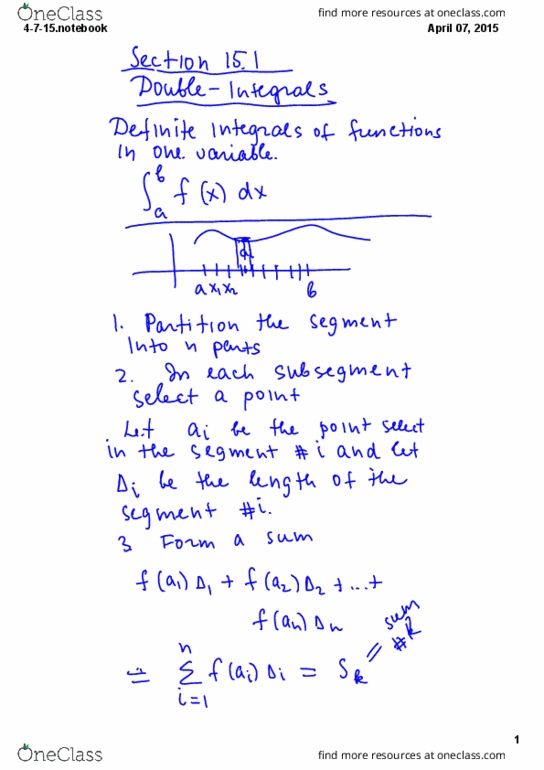 OneClass
find more resources at oneclass.com
4-7-15.notebook
April 07, 2015
Section 15.1
Double-Integrals
Definite integrals of functions
in one variable.
∫_a^b f(x) dx
a x₁ x₂ b
1. Partition the segment
into n parts
2. In each subsegment
select a point
Let aᵢ be the point select
in the segment #i and let
Δᵢ be the length of the
segment #i.
3 Form a sum
f(a₁)Δ₁ + f(a₂)Δ₂ + ... +
f(aₙ)Δₙ
= Σ_{i=1}^{n} f(aᵢ)Δᵢ = S_k = sum #k
1
OneClass
find more resources at oneclass.com